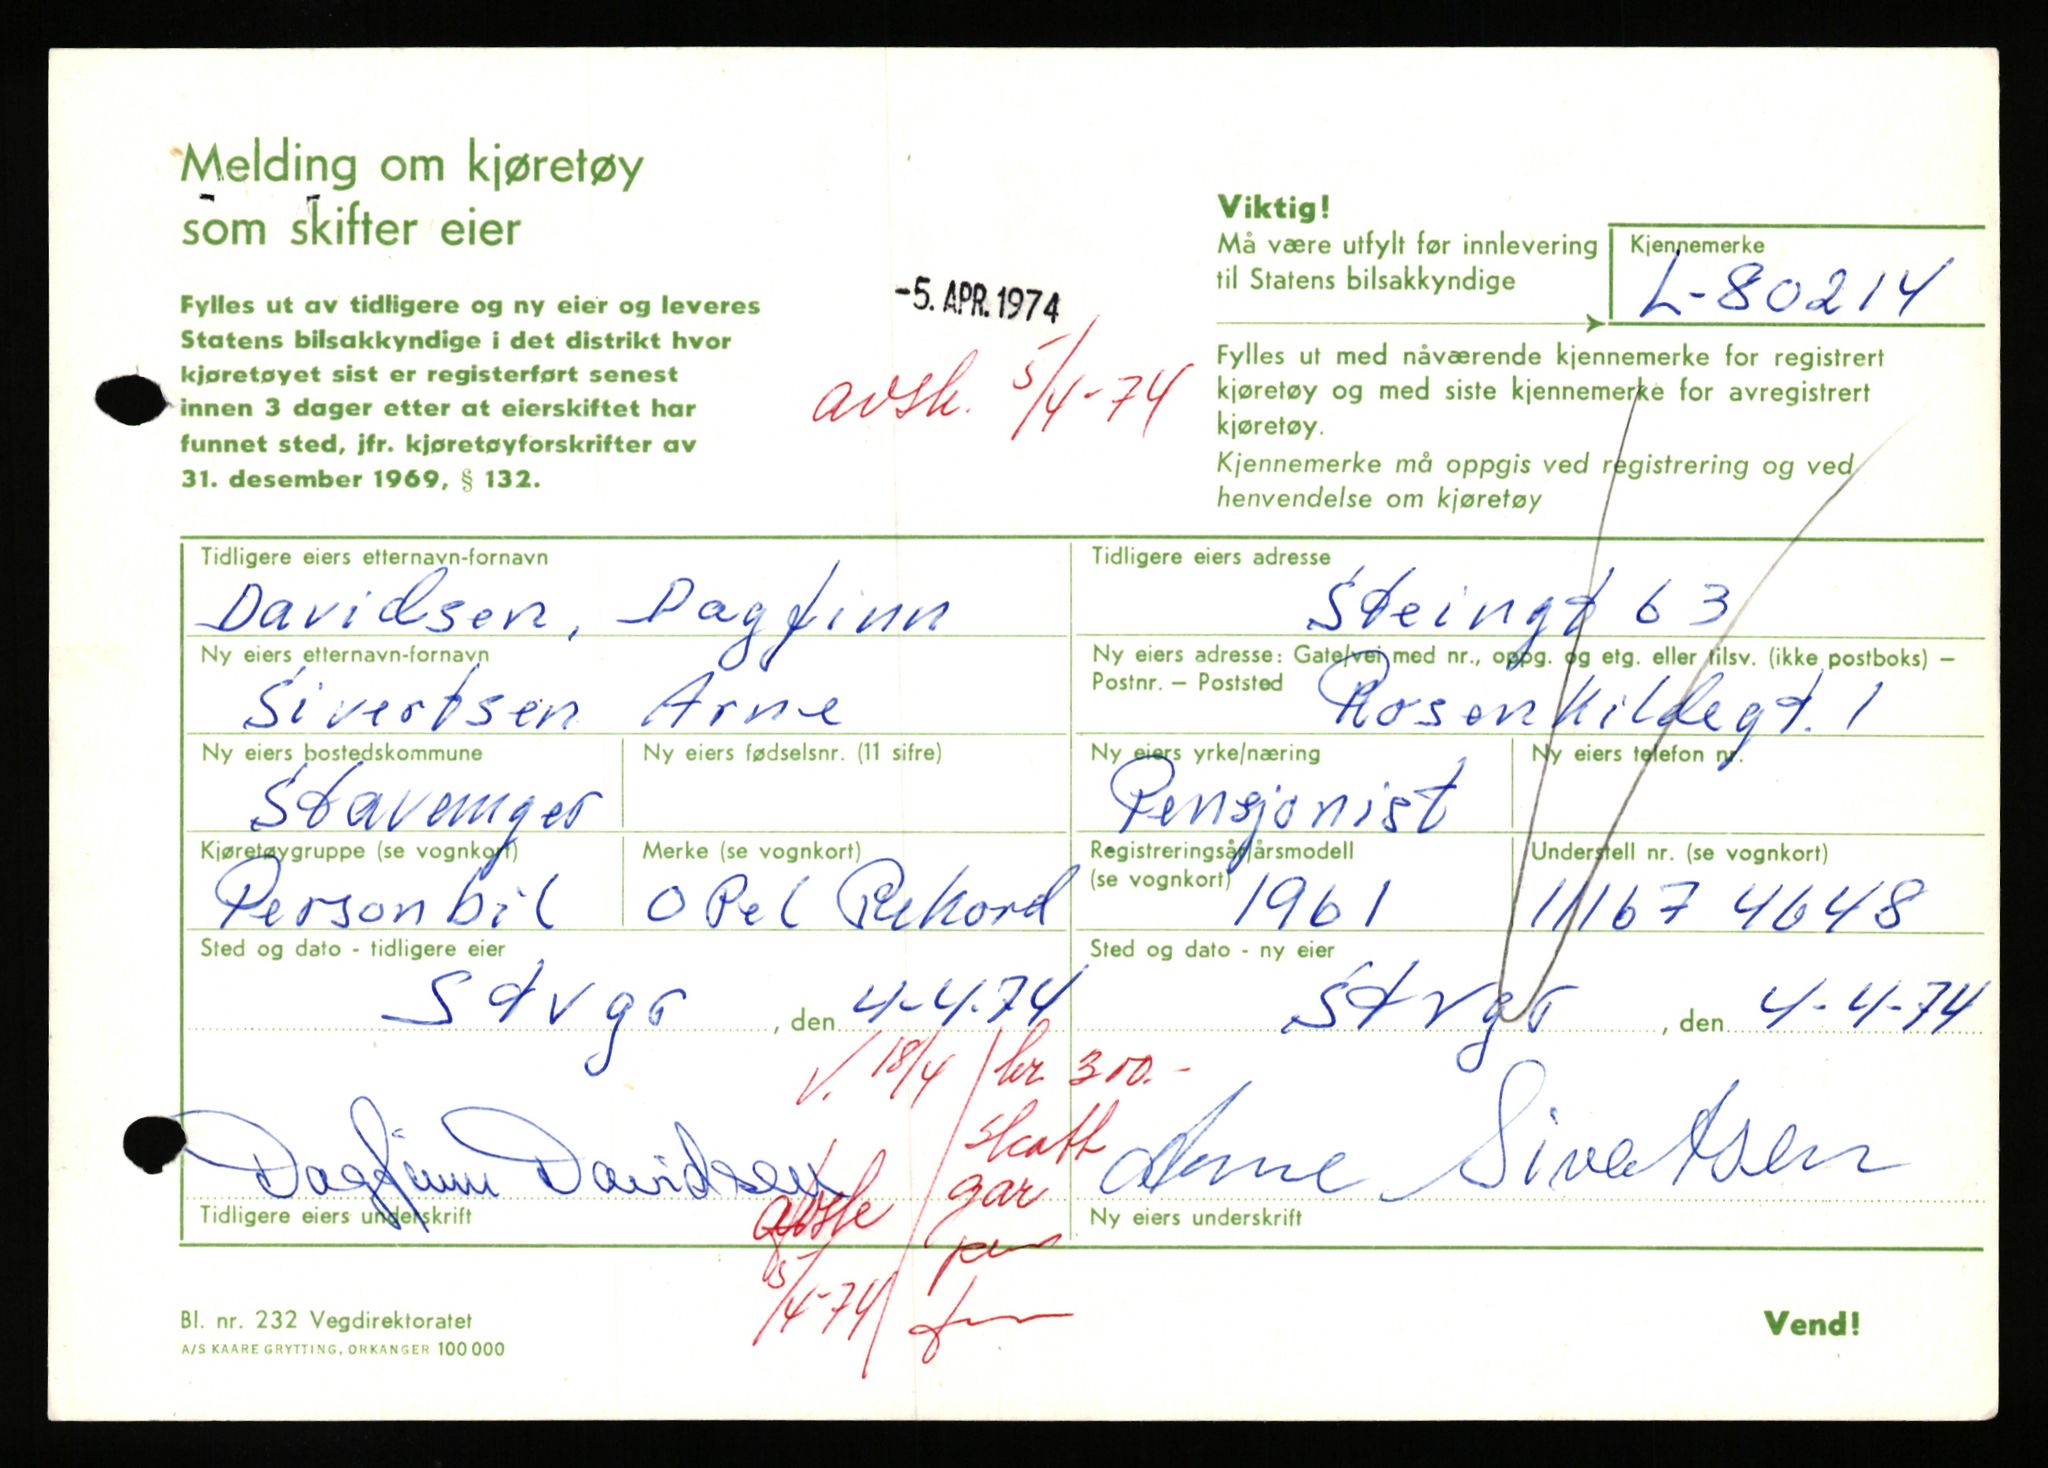 Melding om kjøretøy
som skifter eier
Fylles ut av tidligere og ny eier og leveres
Statens bilsakkyndige i det distrikt hvor
kjøretøyet sist er registerført senest
innen 3 dager etter at eierskiftet har
funnet sted, jfr. kjøretøyforskrifter av
31. desember 1969, § 132.
-5. APR. 1974
avsk. 5/4-74
Viktig!
Må være utfylt før innlevering
til Statens bilsakkyndige
Kjennemerke
L-80214
Fylles ut med nåværende kjennemerke for registrert
kjøretøy og med siste kjennemerke for avregistrert
kjøretøy.
Kjennemerke må oppgis ved registrering og ved
henvendelse om kjøretøy
Tidligere eiers etternavn-fornavn
Davidsen, Dagfinn
Tidligere eiers adresse
Steingt 63
Ny eiers etternavn-fornavn
Sivertsen Arne
Ny eiers adresse: Gate/vei med nr., oppg. og etg. eller tilsv. (ikke postboks) –
Postnr. – Poststed
Rosenkildegt. 1
Ny eiers bostedskommune
Stavanger
Ny eiers fødselsnr. (11 sifre)
Ny eiers yrke/næring
Pensjonist
Ny eiers telefon nr.
Kjøretøygruppe (se vognkort)
Personbil
Merke (se vognkort)
Opel Rekord
Registreringsår/årsmodell
(se vognkort)
1961
Understell nr. (se vognkort)
11167 4648
Sted og dato - tidligere eier
Stvgr, den 4-4-74
Sted og dato - ny eier
Stvgr, den 4-4-74
V. 18/4
kr 300.-
skatt
gar
avsk
5/4-74
Dagfinn Davidsen
Tidligere eiers underskrift
Arne Sivertsen
Ny eiers underskrift
Bl. nr. 232 Vegdirektoratet
A/S KAARE GRYTTING, ORKANGER 100 000
Vend!